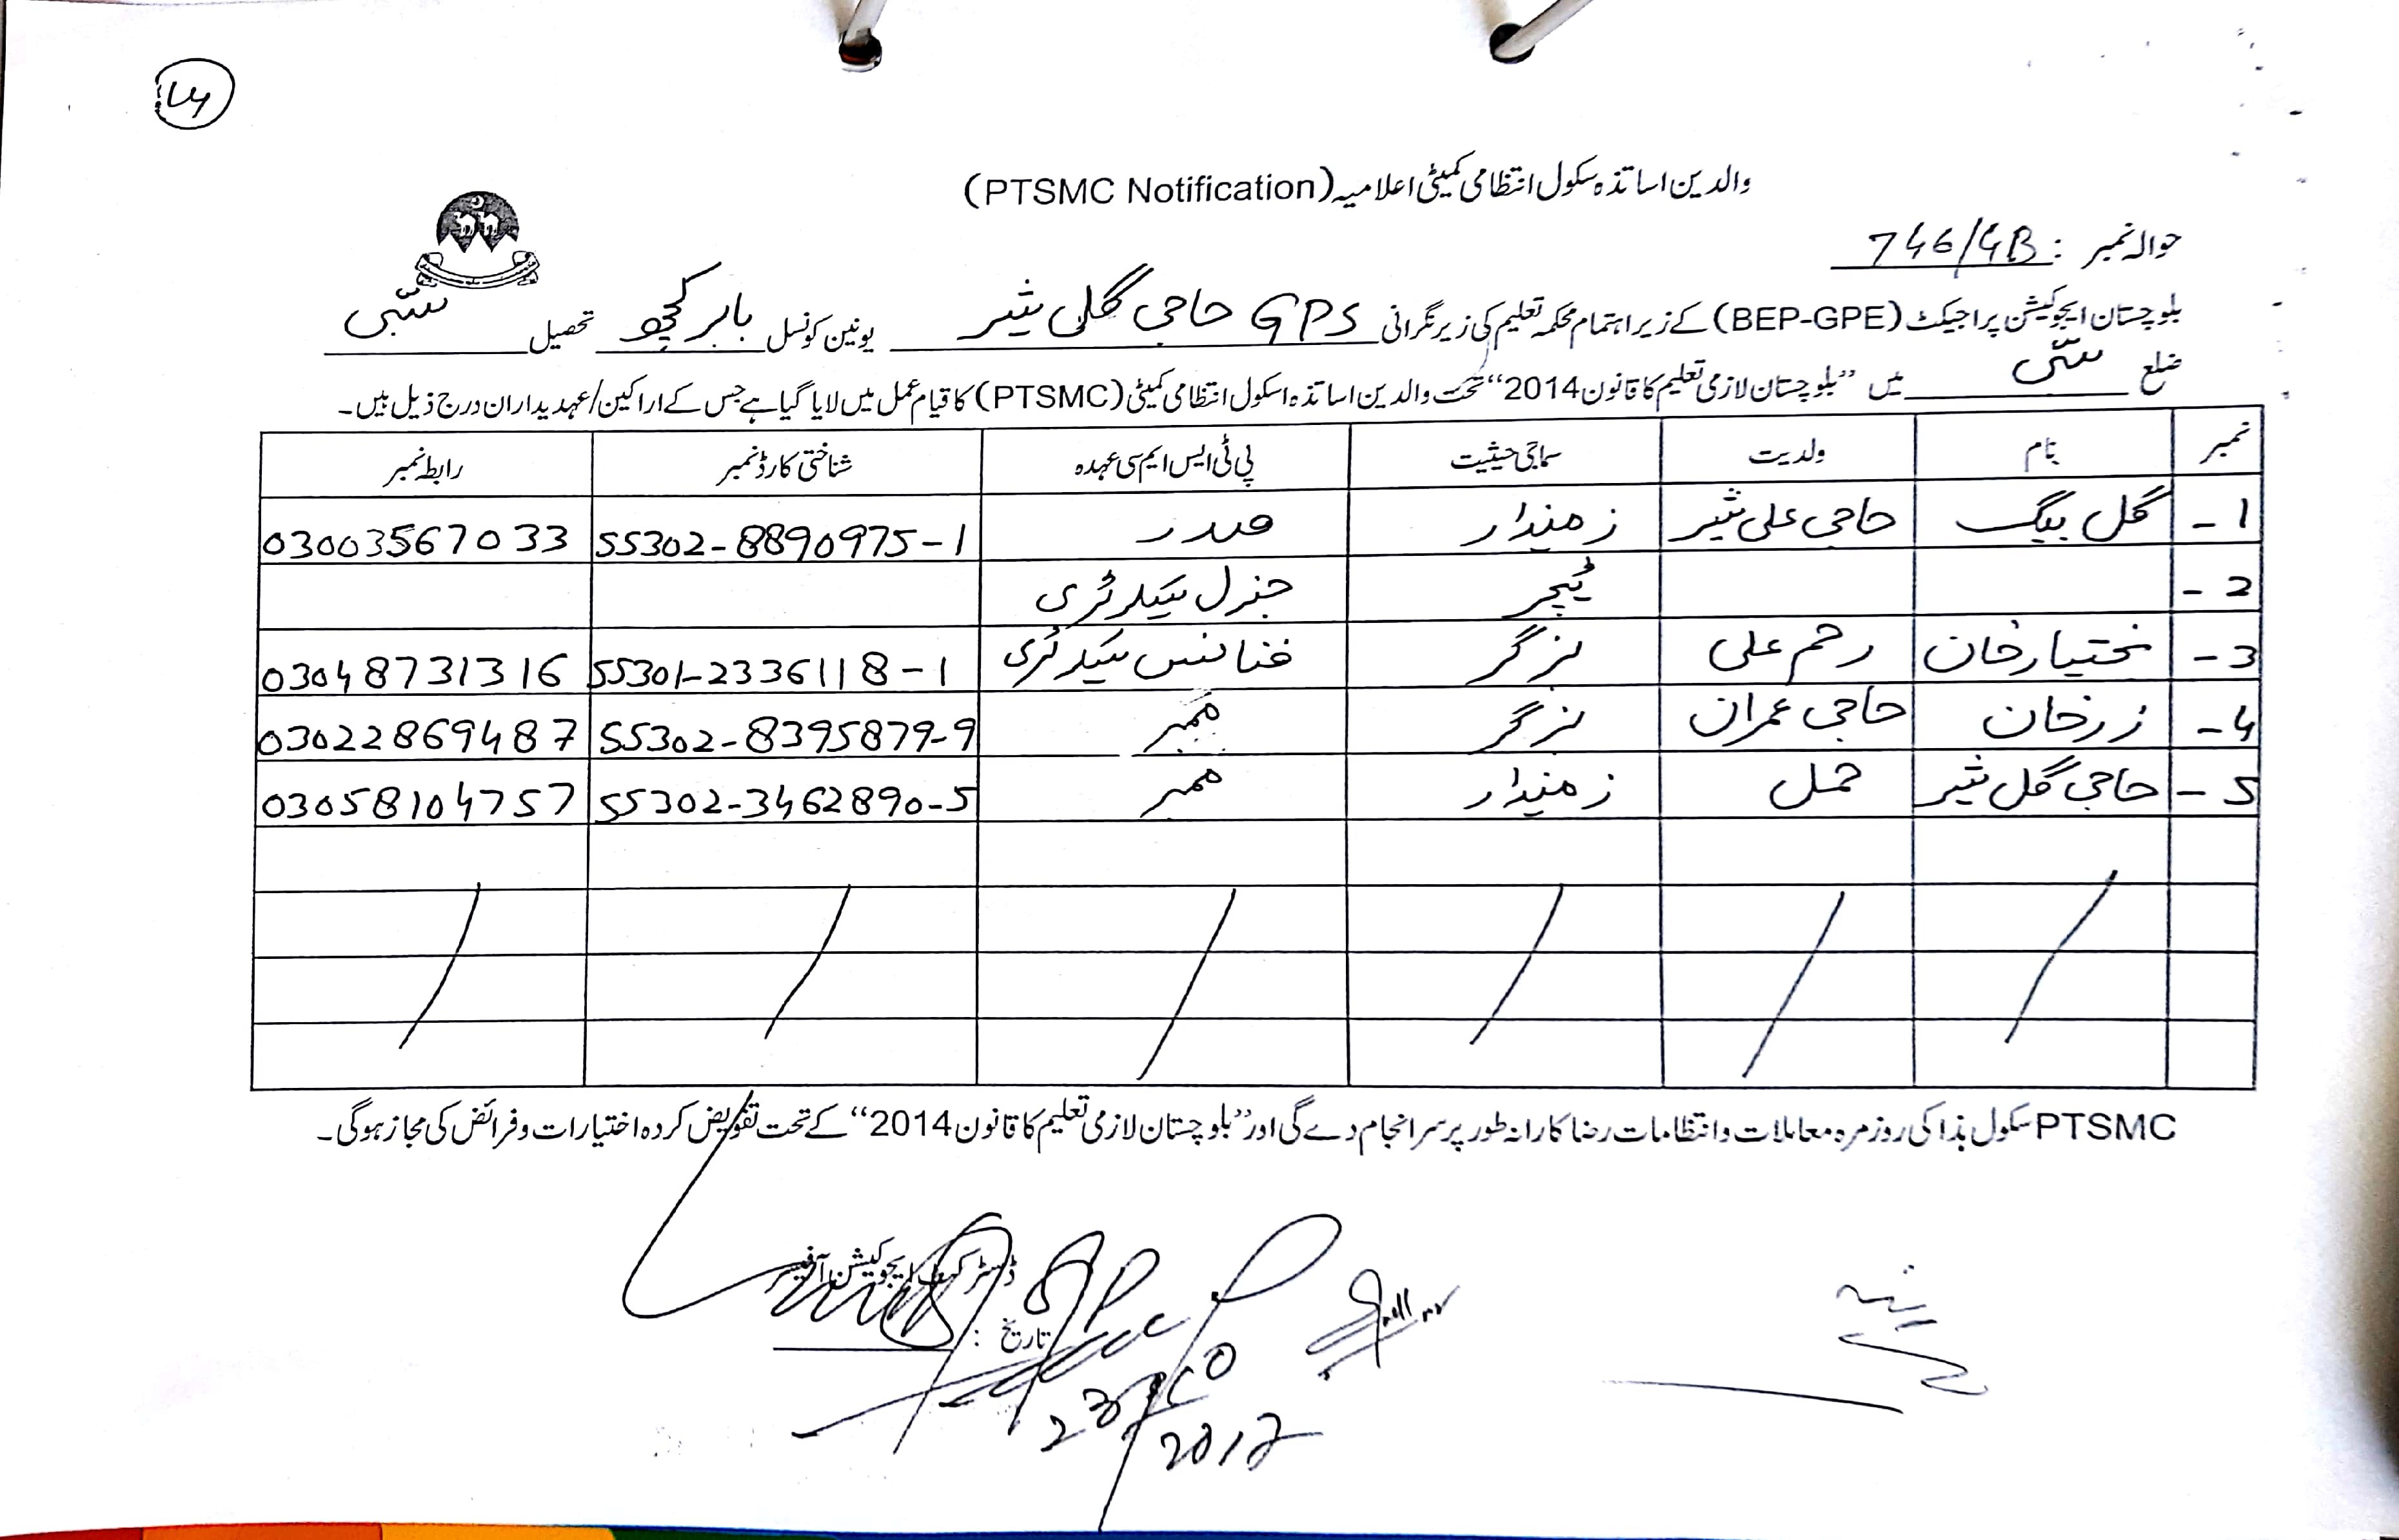 والدین اساتذہ سکول انتظامی کمیٹی اعلامیہ (PTSMC Notification)
حوالہ نمبر : 746/GB
بلوچستان ایجوکیشن پراجیکٹ (BEP-GPE) کے زیر اہتمام محکمہ تعلیم کی زیر نگرانی GPS حاجی گلی شیر یونین کونسل بابر کچھ تحصیل سبی
ضلع سبی میں "بلوچستان لازمی تعلیم کا قانون 2014" تحت والدین اساتذہ اسکول انتظامی کمیٹی (PTSMC) کا قیام عمل میں لایا گیا ہے جس کے اراکین/عہدیداران درج ذیل ہیں۔
نمبر نام ولدیت سماجی حیثیت پی ٹی ایس ایم سی عہدہ شناختی کارڈ نمبر رابطہ نمبر
1- گل بیگ حاجی علی شیر زمیندار صدر 55302-8890975-1 03003567033
2- ٹیچر جنرل سیکرٹری
3- بختیار خان رحم علی بزگر فنانس سیکرٹری 55301-2336118-1 03048731316
4- زر خان حاجی عمران بزگر ممبر 55302-8395879-9 03022869487
5- حاجی گل شیر حمل زمیندار ممبر 55302-3462890-5 03058104757
PTSMC سکول ہذا کی روزمرہ معاملات و انتظامات رضا کارانہ طور پر سرانجام دے گی اور "بلوچستان لازمی تعلیم کا قانون 2014" کے تحت تفویض کردہ اختیارات و فرائض کی مجاز ہوگی۔
ڈسٹرکٹ ایجوکیشن آفیسر
تاریخ :